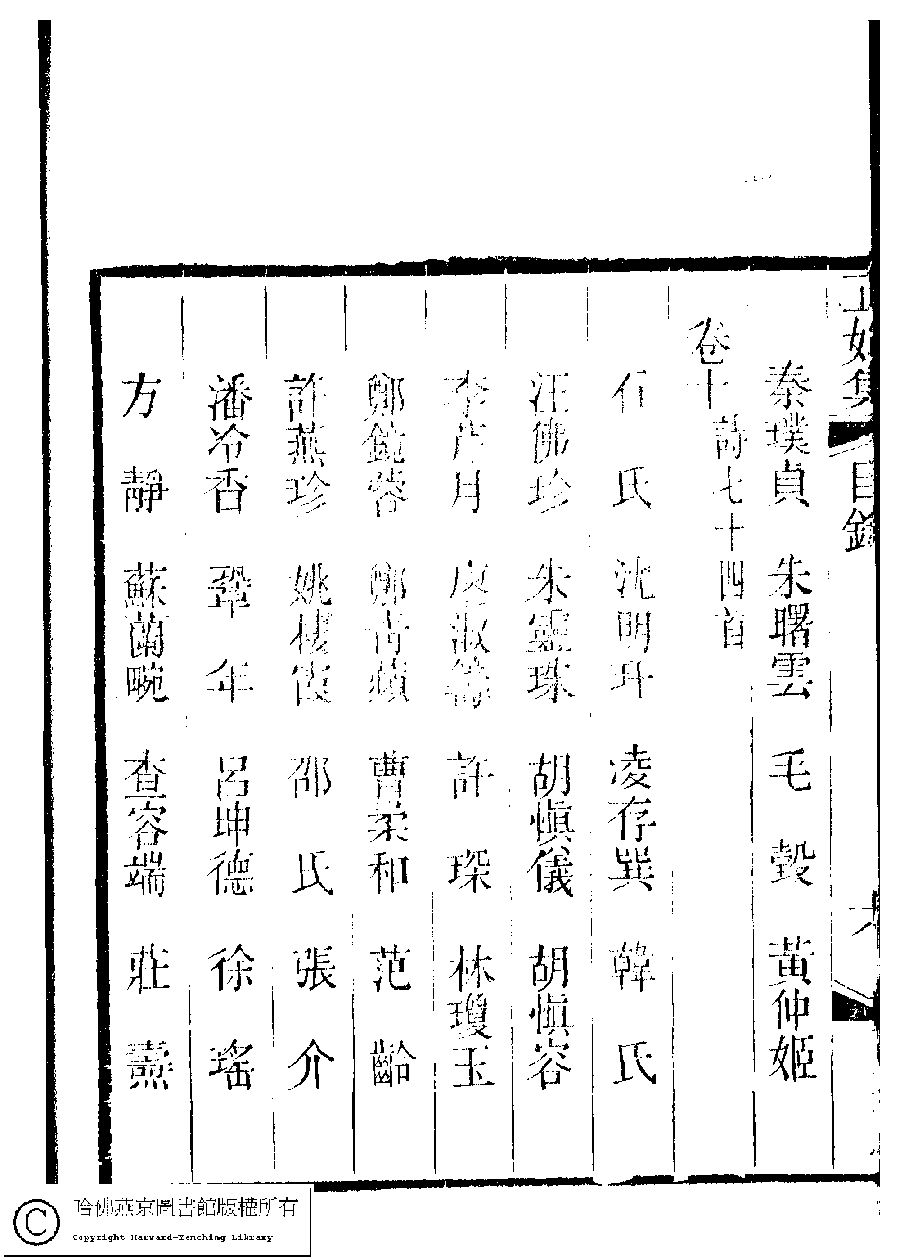 正始集 目錄
秦璞貞 朱曙雲 毛瑴 黃仲姬
卷十 詩七十四首
石氏 沈明玕 凌存巽 韓氏
汪佛珍 朱靈珠 胡慎儀 胡慎容
李芹月 許琛 林瓊玉
鄭鏡蓉 鄭青蘋 曹柔和 范齡
許燕珍 姚棲霞 邵氏 張介
潘冷香 鞏年 呂坤德 徐瑤
方靜 蘇蘭畹 查容端 莊燾
哈佛燕京圖書館版權所有
Copyright Harvard-Yenching Library